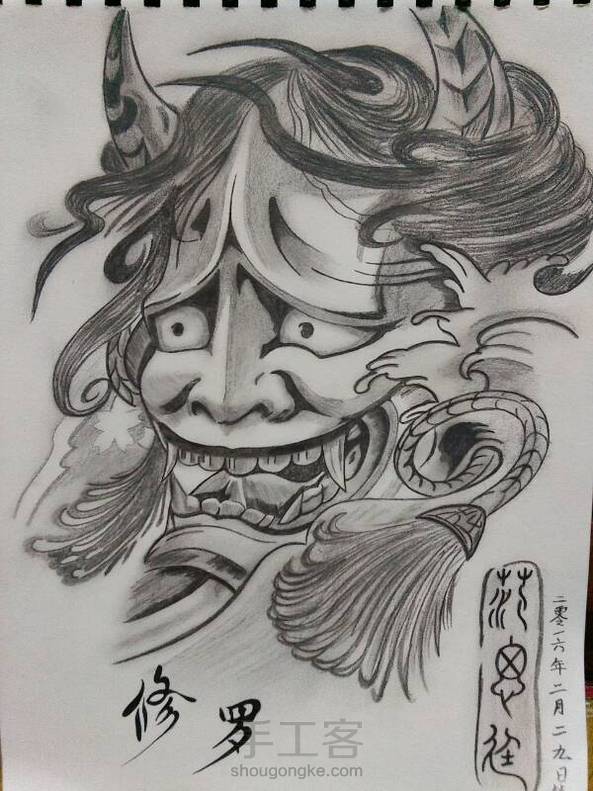 修罗
二零一六年二月二九日
手工客
shougongke.com